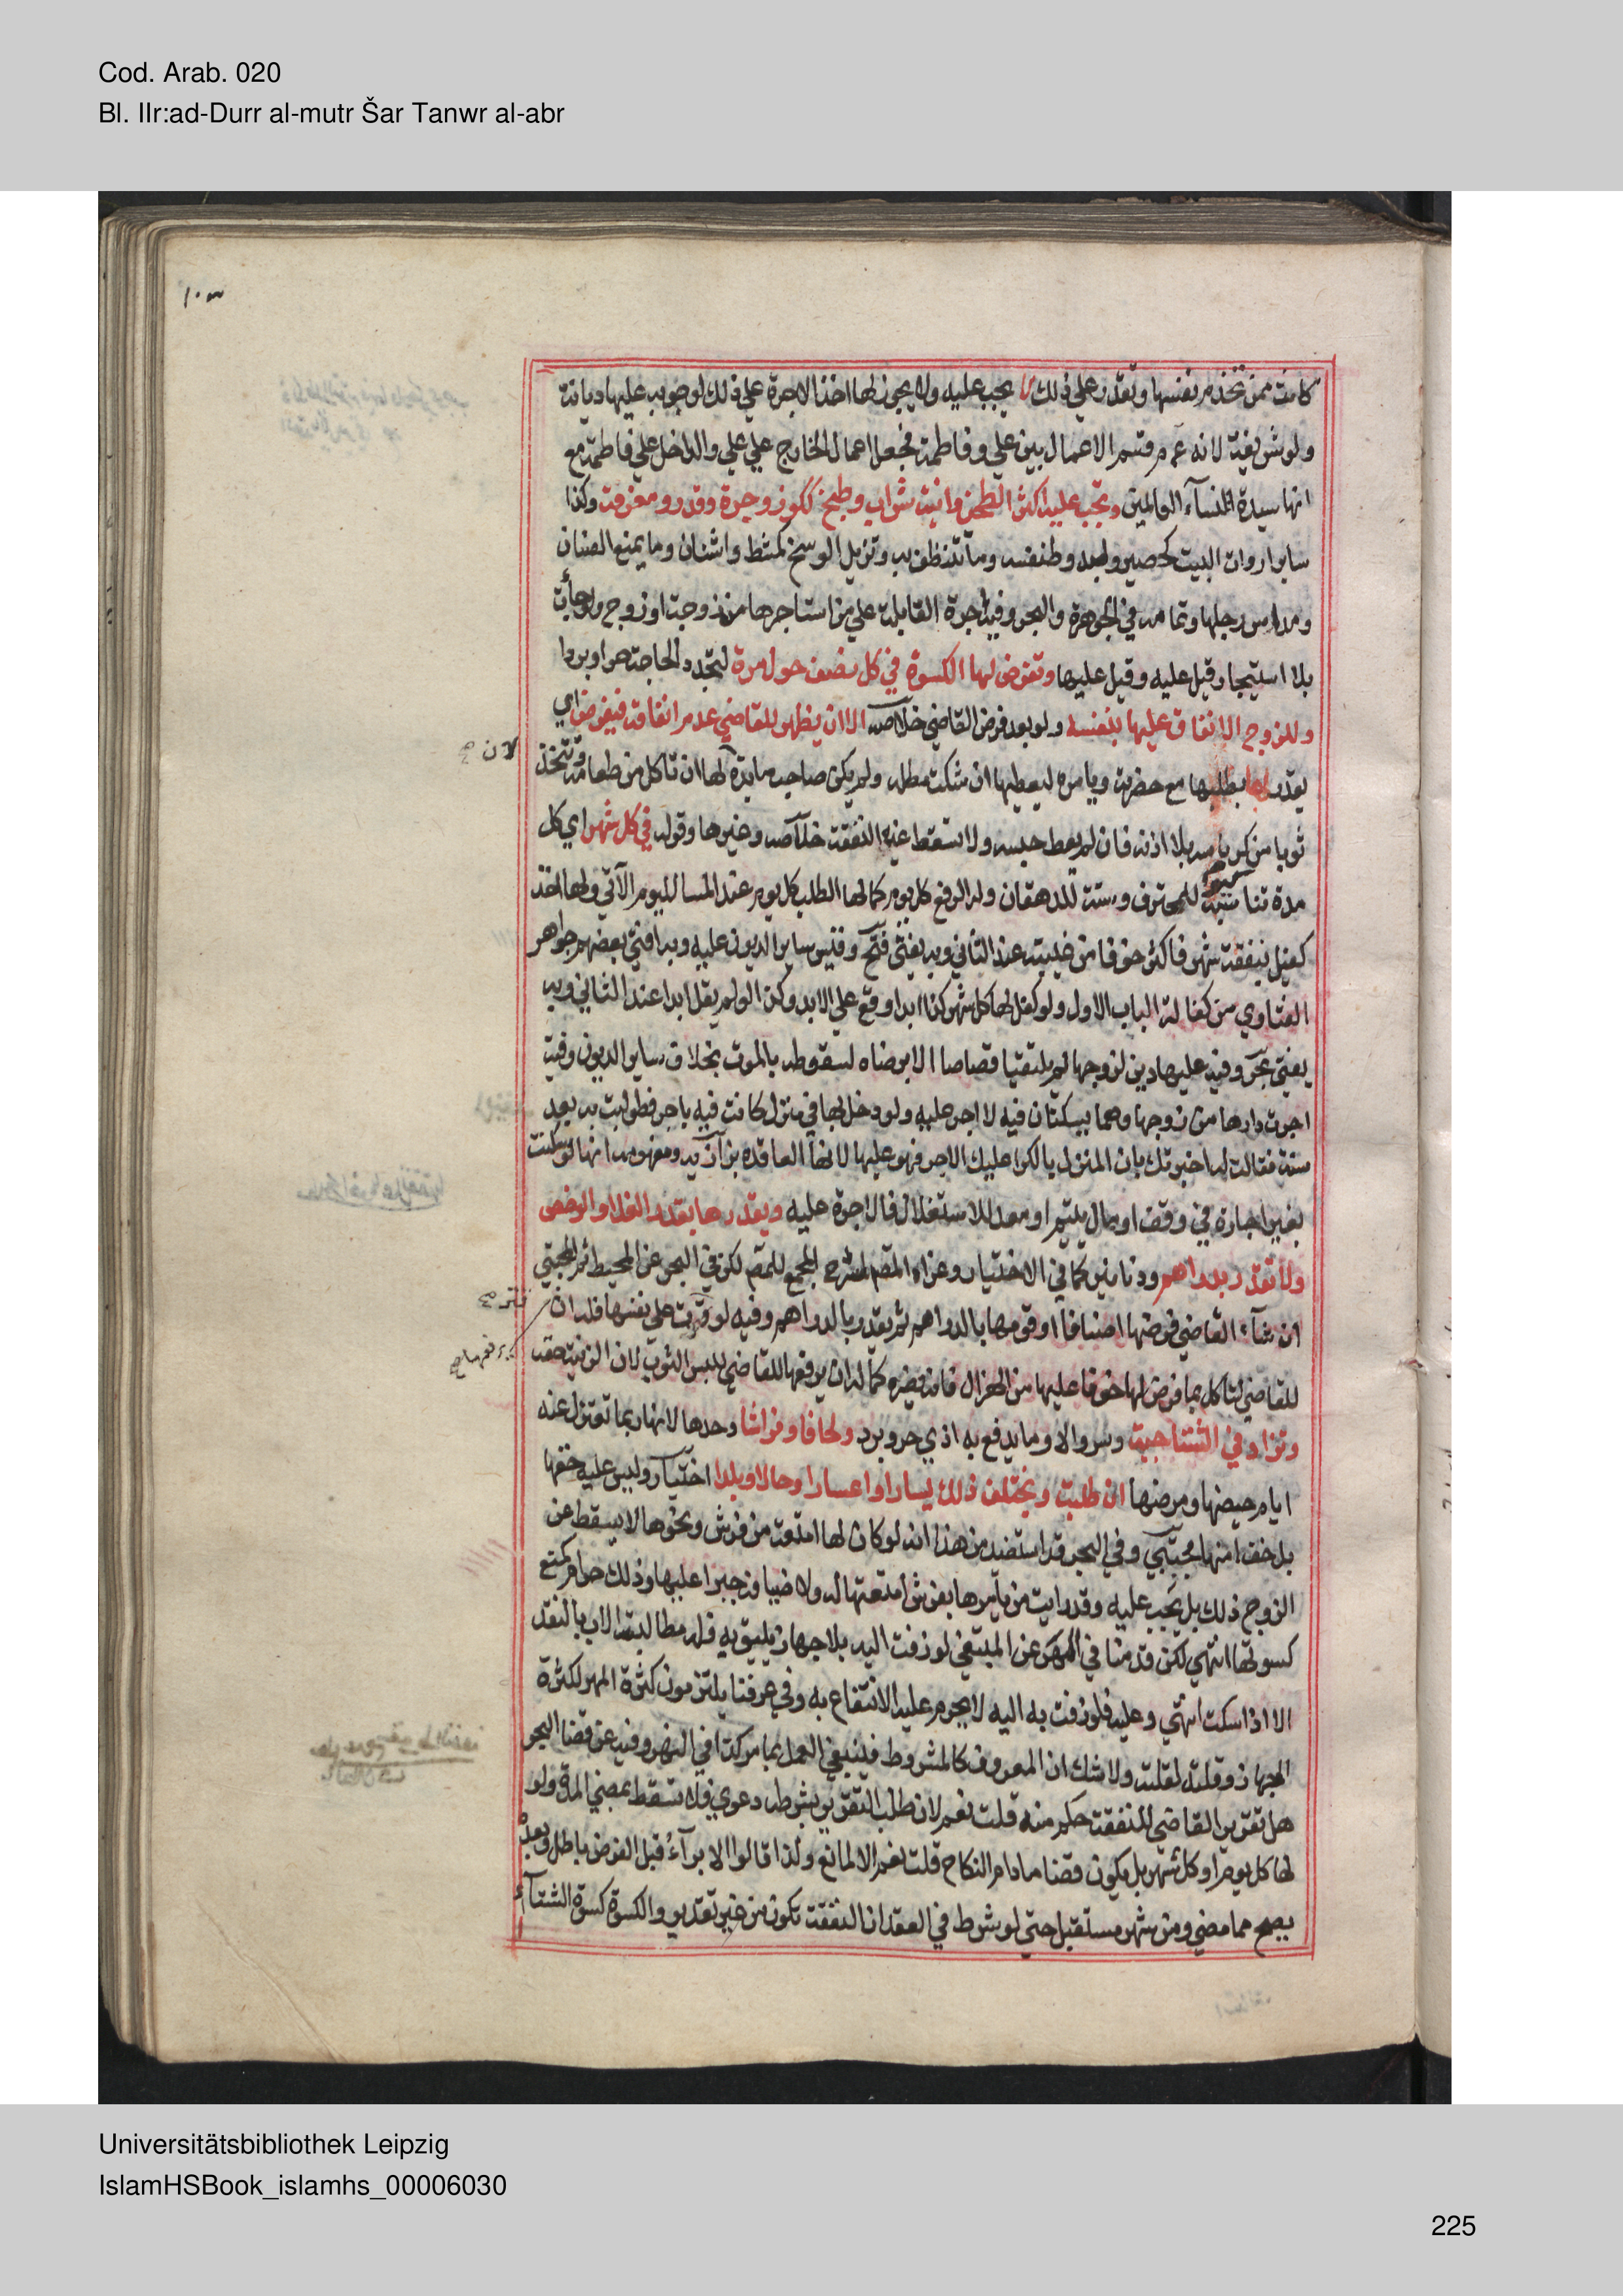 Cod. Arab. 020
Bl. IIr:ad-Durr al-mutr Šar Tanwr al-abr
كانت ممن تخدم نفسها وتقدر على ذلك لا يجب عليه ولا يجوز لها اخذ الاجرة على ذلك لوجوبه عليها ديانة
ولو شريفة لانه عم قسم الاعمال بين علي وفاطمة فجعل اعمال الخارج على علي والداخل على فاطمة مع
انها سيدة النسآء العالمين وتجب عليه الة الطحن وانية شراب وطبخ ككوز وجرة وقدر ومغرفة وكذا
ساير ادوات البيت كحصير ولبد وطنفسة وما تتنظف به وتزيل الوسخ كمشط واشنان وما يمنع الصنان
ومداس رجلها وتمامه في الجوهرة والبحر وفيه اجرة القابلة على من استاجرها من زوجة او زوج ولو جأت
بلا استيجار قيل عليه وقيل عليها وتفرض لها الكسوة في كل نصف حول مرة لتجدد الحاجة حرا وبردا
وللزوج الانفاق عليها بنفسه ولو بعد فرض القاضي خلاصه الا ان يظهر للقاضي عدم انفاقه فيفرض اي
لان صح
يقدر لها بطلبها مع حضرته ويامره ليعطيها ان شكت مطله ولم يكن صاحب مايدة لها ان تاكل من طعامه وتتخذ
ثوبا من كرباسه بلا اذنه فان لم يعط حبسه ولا تسقط عنه النفقة خلاصه وغيرها وقوله في كل شهر اي كل
مدة تناسبه للمحترف وسنة للدهقان وله الدفع كل يوم كما لها الطلب كل يوم عند المسا لليوم الآتي ولها اخذ
كفيل بنفقة شهر فاكثر خوفا من غيبته عند الثاني وبه يفتى فتح وقيس ساير الديون عليه وبه افتى بعضهم جواهر
الفتاوي من كفالة الباب الاول ولو كفل لها كل شهر كذا ابدا وقع على الابد وكذا لو لم يقل ابدا عند الثاني وبه
يفتى بحر وفيه عليها دين لزوجها لم يلتقيا قصاصا الا برضاه لسقوطه بالموت بخلاف ساير الديون وفيه
اجرت دارها من زوجها وهما يسكنان فيه لا اجر عليه ولو دخل بها في منزل كانت فيه باجر فطولبت به بعد
سنة فقالت له اخبرتك بان المنزل بالكرا عليك الاجر فهو عليها لانها العاقدة بزازيه ومفهومه انها لو سكنت
بغير اجارة في وقف او مال يتيم او معد للاستغلال فالاجرة عليه ويقدرها بقدر الغلا والرخص
ولا تقدر بدراهم ودنانير كما في الاختيار وعزاه المقم لشرح المجمع للمص لكن في البحر عن المحيط ثم المجتبى
ان شآء القاضي فرضها اصنافا او قومها بالدراهم ثم يقدر بالدراهم وفيه لو قترت على نفسها فله ان
للقاضي لتاكل مما فرض لها خوفا عليها من الهزال فانه يضره كما له ان يرفعها للقاضي للبس الثوب لان الزينة حقه
وتزاد في الشتا جبة وسروالا وما يدفع به اذي حر وبرد ولحافا وفراشا وحدها لانها ربما تعتزل عنه
ايام حيضها ومرضها ان طلبت ويختلف ذلك يسارا واعسارا وحالا وبلدا اختيار وليس عليه خفها
بل خف امتها مجتبى وفي البحر قد استفيد من هذا انه لو كان لها امتعة من فرش ونحوها لا يسقط عن
الزوج ذلك بل يجب عليه وقد رايت من يأمرها بفرش امتعتها له ولاضيافه جبرا عليها وذلك حرام كمنع
كسوتها انتهي لكن قدمنا في المهر عن المبتغى لو زفت اليه بلا جهاز يليق به فله مطالبة الاب بالنقد
الا اذا سكت انتهي وعليه فلو زفت به اليه لا يحرم عليه الانتفاع به وفي عرفنا يلتزمون كثرة المهر لكثرة
الجهاز وقلته لقلته ولا شك ان المعروف كالمشروط فينبغي العمل بما مر كذا في النهر وفيه عن قضا البحر
هل تقرير القاضي للنفقة حكم منه قلت نعم لان طلب التقرير بشرطه دعوي فلا تسقط بمضي المدة ولو
لها كل يوم او كل شهر بل يكون قضا ما دام النكاح قلت نعم الا لمانع ولذا قالوا الابرآء قبل الفرض باطل وبعده
يصح مما مضي ومن شهر مستقبل حتى لو شرط في العقد ان النفقة تكون من غير تقدير والكسوة كسوة الشتآء
Universitätsbibliothek Leipzig
IslamHSBook_islamhs_00006030
225